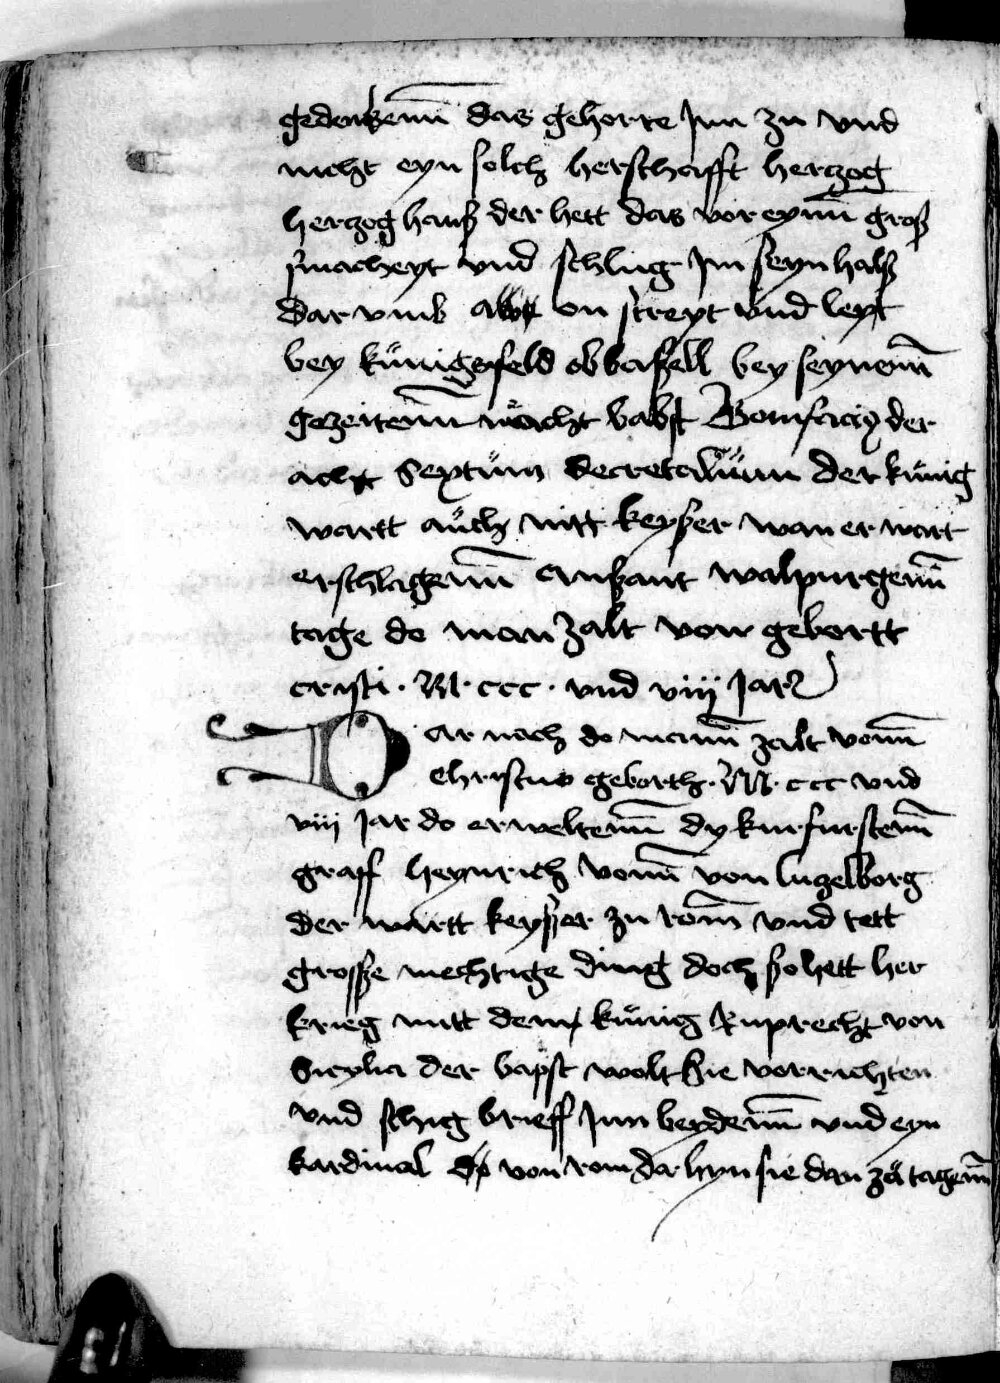 gedenkenn das gehorte Jnn zu vnd
nicht eyn solch herschafft herczog
herczog hanß der hett das vor eynnn groß
smacheyt vnd schlug Jm seyn halß
dar vmb on streyt vnd leyt
bey künigesfeld ob baßell bey seynenn
gezeitenn macht babst Bonifaciꝯ der
acht Sextüm decretaliüm der künig
wartt aüch nitt keyßer wan er wart
erschlagenn anßant walpurgenn
tage do man zalt von gebortt
cristi · M · ccc · vnd viij Jar
Dar nach do mann zalt vonn
Christus geborth · M · ccc vnd
viij Jar do erweltenn dy kurfurstenn
graff heynrich vonn von luczelborg
der wartt keyßer zu rom vnd tett
grosße mechtige ding doch ßo hett her
krieg mitt dem künig Ruprecht von
Sicylia der bapst wolt sie vorrichten
vnd schig brieff Jnn beydenn vnd eyn
kardinal von rom da hyn sie dan zü tagenn